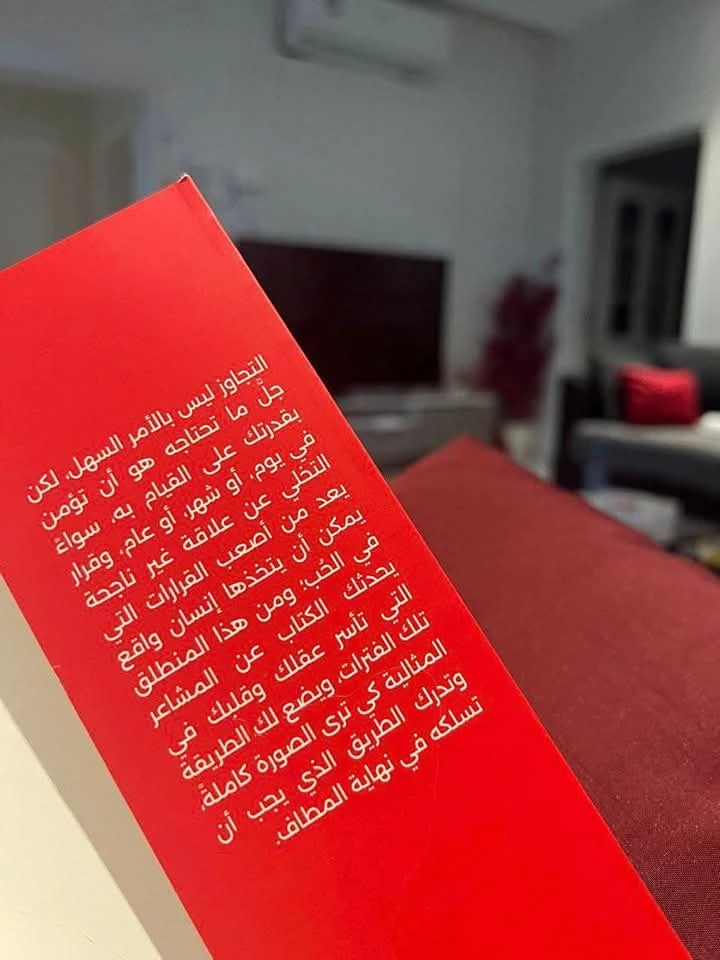 التجاوز ليس بالأمر السهل، لكن
جلَّ ما تحتاجه هو أن تؤمن
بقدرتك على القيام به، سواءً
في يوم، أو شهر، أو عام، وقرار
التخلي عن علاقة غير ناجحة
يعد من أصعب القرارات التي
يمكن أن يتخذها إنسان واقع
في الحُب؛ ومن هذا المنطلق
يحدثك الكتاب عن المشاعر
التي تأسر عقلك وقلبك في
تلك الفترات، ويضع لك الطريقة
المثالية كي ترى الصورة كاملةً،
وتدرك الطريق الذي يجب أن
تسلكه في نهاية المطاف.